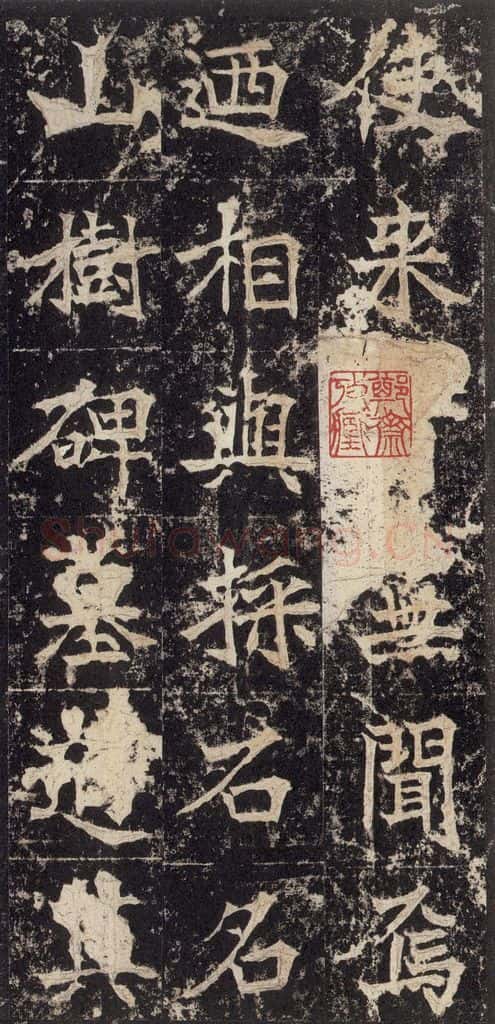 使来無聞焉
迺相與採石名
山樹碑墓道其
Shufawang.CN